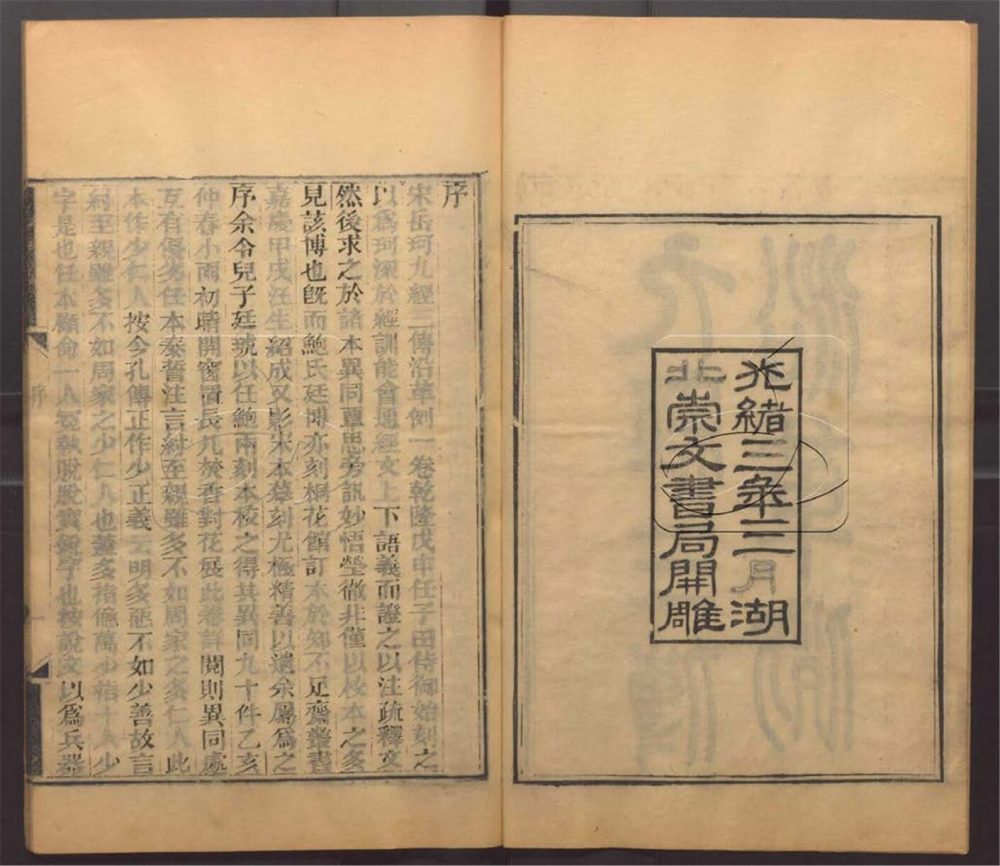 光緒三年三月湖
北崇文書局開雕
序
宋岳珂九經三傳沿革例一卷乾隆戊申任子田侍御始刻之
以爲珂深於經訓能會通經文上下語義而證之以注疏釋文
然後求之於諸本異同覃思旁訊妙悟瑩徹非僅以校本之多
見該博也旣而鮑氏廷博亦刻桐花館訂本於知不足齋叢書
嘉慶甲戌汪生紹成又影宋本摹刻尤極精善以遺余屬爲之
序余令兒子廷琥以任鮑兩刻本校之得其異同九十件乙亥
仲春小雨初晴開窗滌長几焚香對花展此卷詳閱則異同處
互有優劣任本泰誓注言紂至親雖多不如周家之多仁人此
本作少仁人按今孔傳正作少正義云明多惡不如少善故言
紂至親雖多不如周家之少仁人也蓋多指億萬少指十人少
字是也任本顧命一人冕執脫脫實銳字也按說文以爲兵器